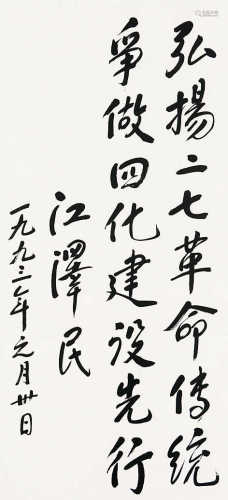 弘揚二七革命傳統
爭做四化建设先行
江澤民
一九九三年元月卅日